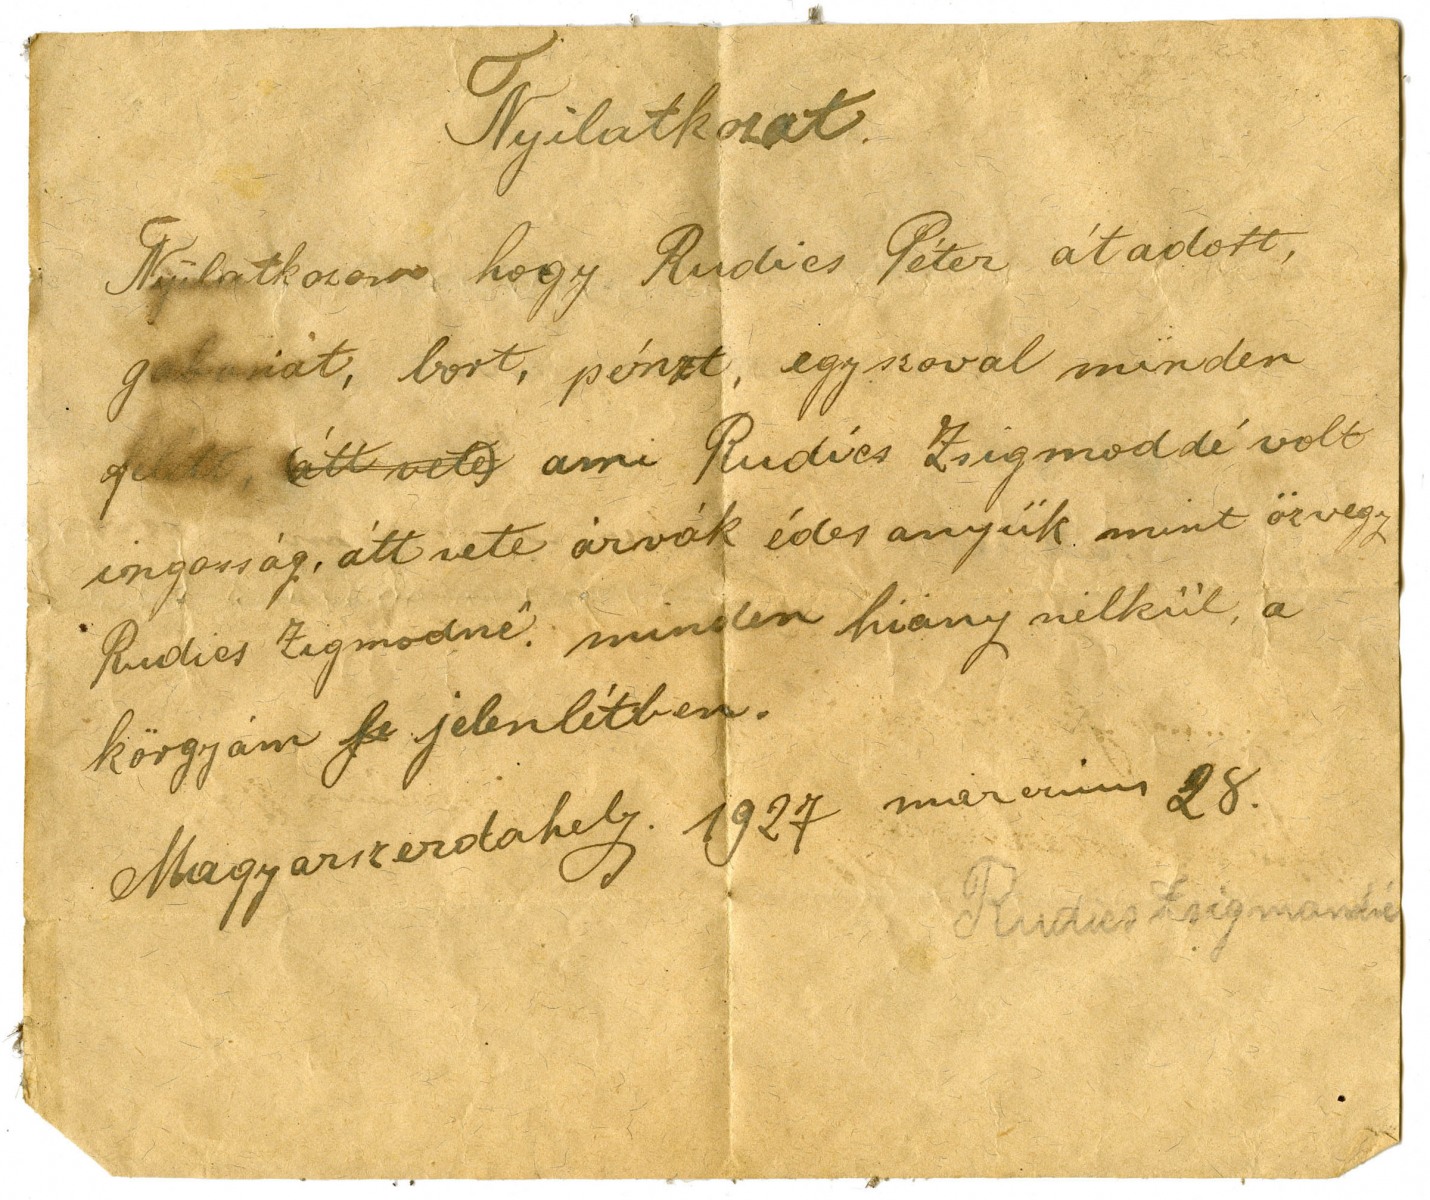 Nyilatkozat.
Nyilatkozom hogy Rudics Péter átadott,
gabonát, bort, pénzt, egyszoval minden
átt vete ami Rudics Zsigmoddé volt
ingosság, átt vete árvák édes anyjük mint özvegy
Rudics Zigmodné. minden hiány nélkül, a
körgyám jelenlétben.
Magyarszerdahely. 1927 márczius 28.
Rudics Zsigmondné